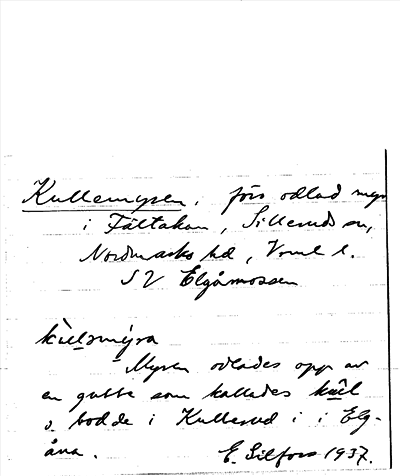 Kullemyren, förs odlad myr
i Fältakan, Silleruds sn,
Nordmarks hd, Vrml l.
SV Elgåmossen
kùlǝmýra
Myren odlades opp av
en gubbe som kallades kul
o. bodde i Kullerud i i Elg-
åna. E. Gilfors 1937.